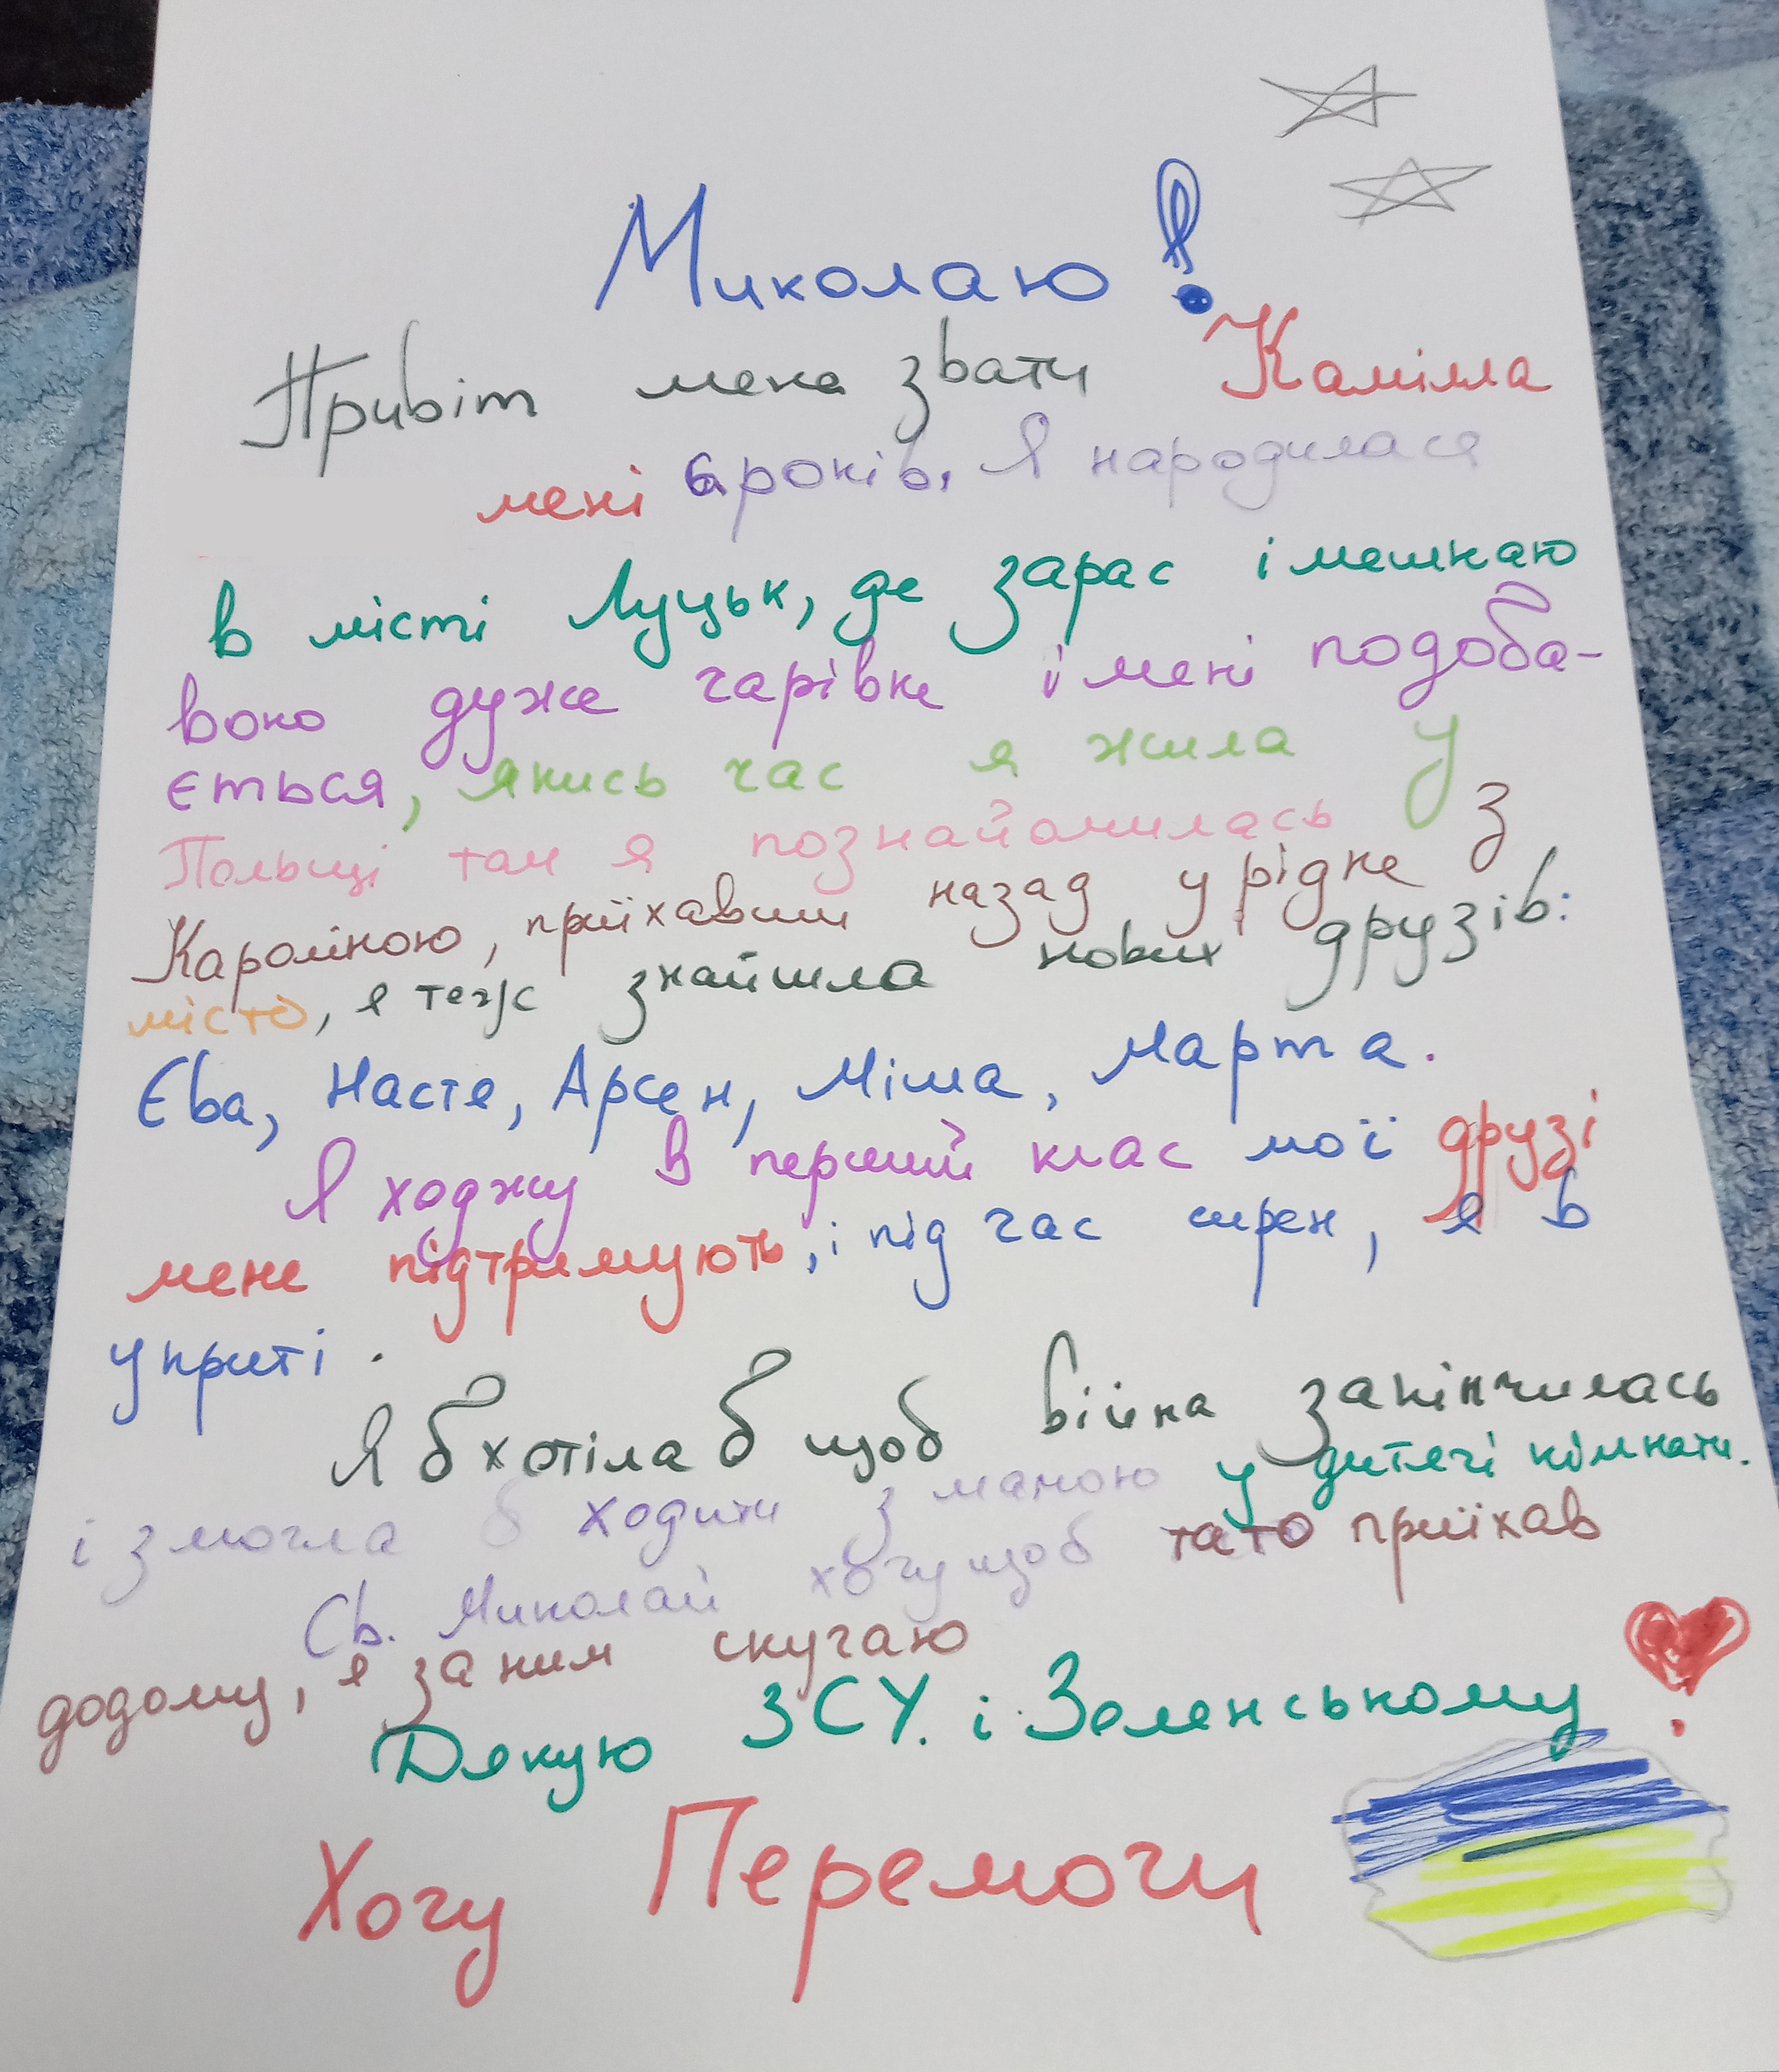 Миколаю!
Привіт мене звати Камілла
мені 6 років. Я народилася
в місті Луцьк, де зарас і мешкаю
воно дуже чарівне і мені подоба-
ється, якись час я жила у
Польщі там я познайомилась з
Кароліною, приїхавши назад у рідне
місто, я теж знайшла нових друзів:
Єва, Настя, Арсен, Міша, Марта.
Я ходжу в перший клас мої друзі
мене підтримують, і під час сирен, я в
укриті.
Я б хотіла б щоб війна закінчилась
і змогла б ходити з мамою у дитячі кімнати.
Св. Миколай хочу щоб тато приїхав
додому, я за ним скучаю
Дякую ЗСУ. і Зеленському
Хочу Перемоги